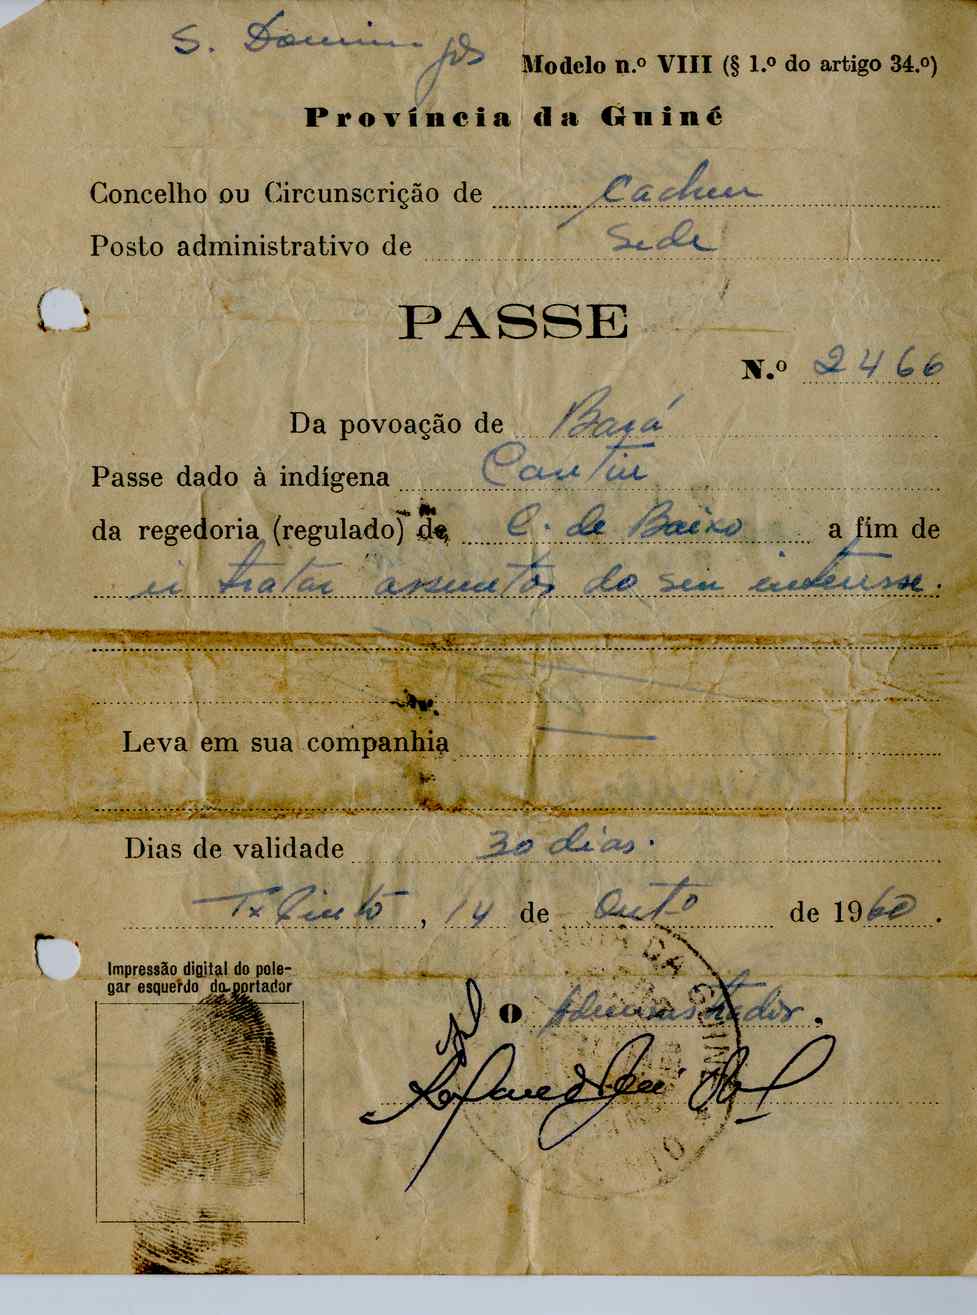 S. Domingos
Modelo n.º VIII (§ 1.º do artigo 34.º)
Província da Guiné
Concelho ou Circunscrição de Cacheu
Posto administrativo de Sede
PASSE
N.º 2466
Da povoação de Bará
Passe dado à indígena
da regedoria (regulado) de C. de Baixo a fim de
ir tratar assuntos do seu interesse.
Leva em sua companhia
Dias de validade 30 dias.
Tx Pinto, 14 de Outº de 1960.
Impressão digital do pole-
gar esquerdo do portador
O Administrador,
DA GUINÉ